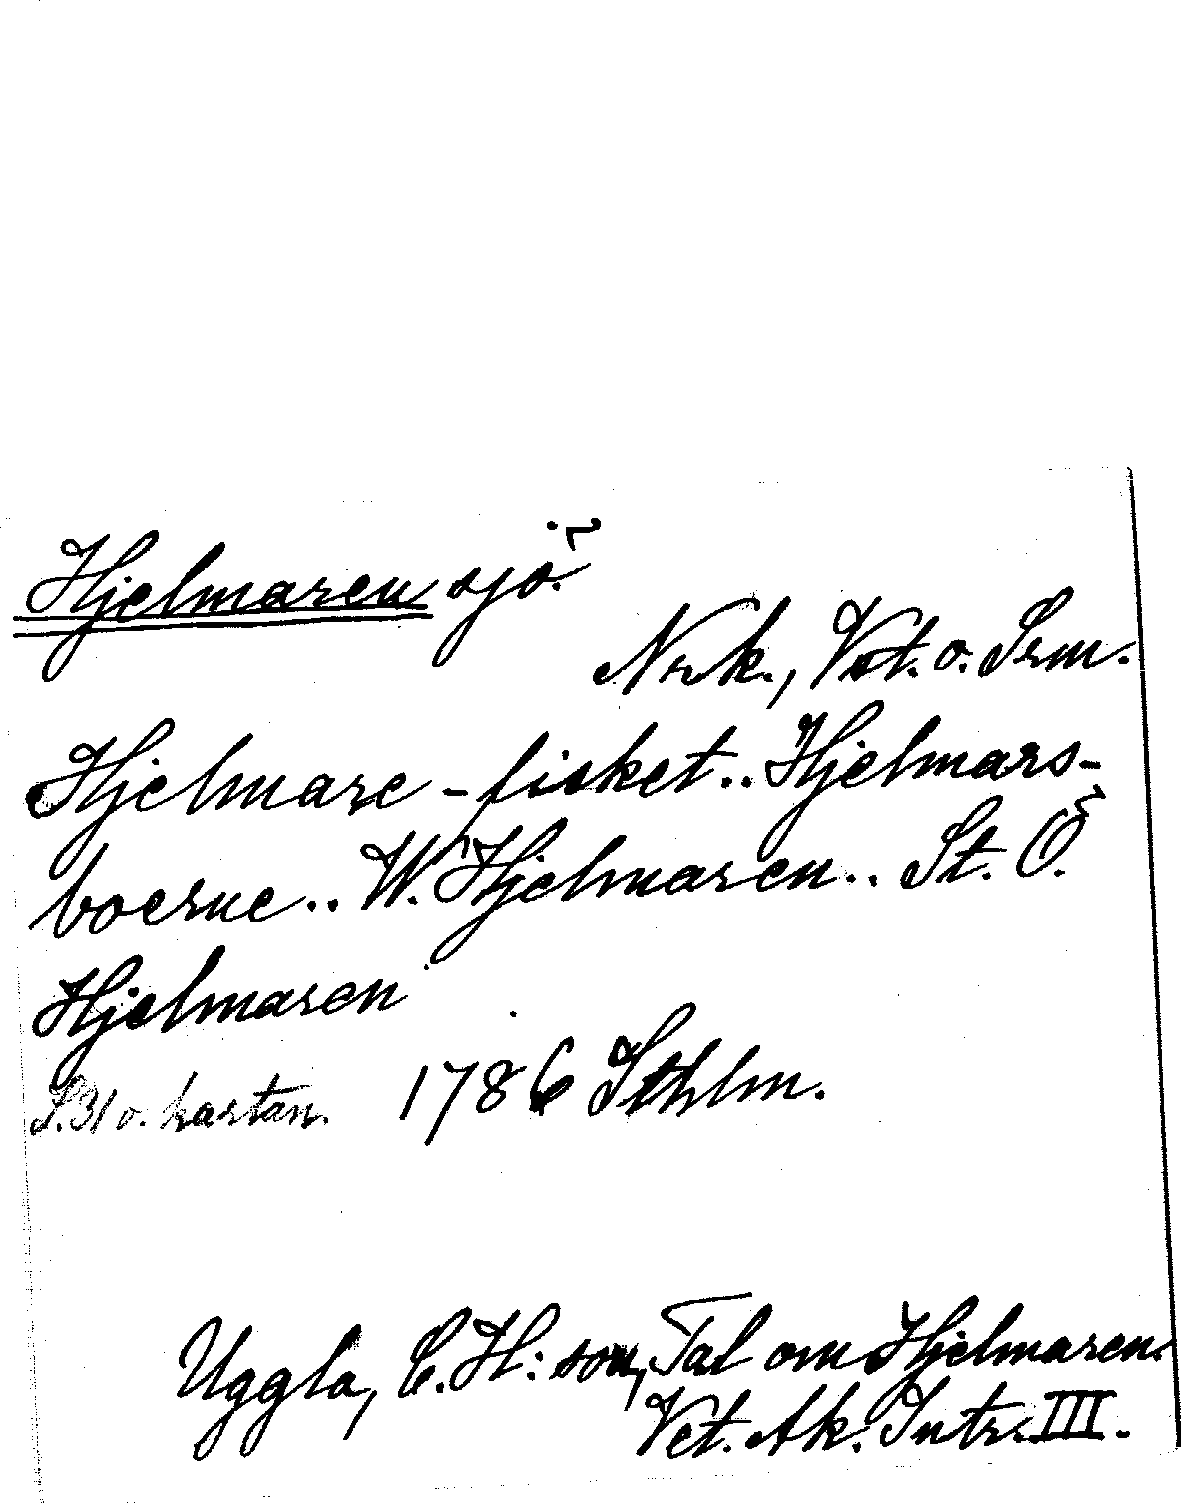 Hjelmaren sjö.
Nrk., Vst. o. Srm.
Hjelmare-fisket.. Hjelmars-
boerne.. W. Hjelmaren.. St. Ö.
Hjelmaren
S. 31 o. kartan. 1786 Sthlm.
Uggla, C. H:son, Tal om Hjelmaren.
Vet. Ak. Intr. III.